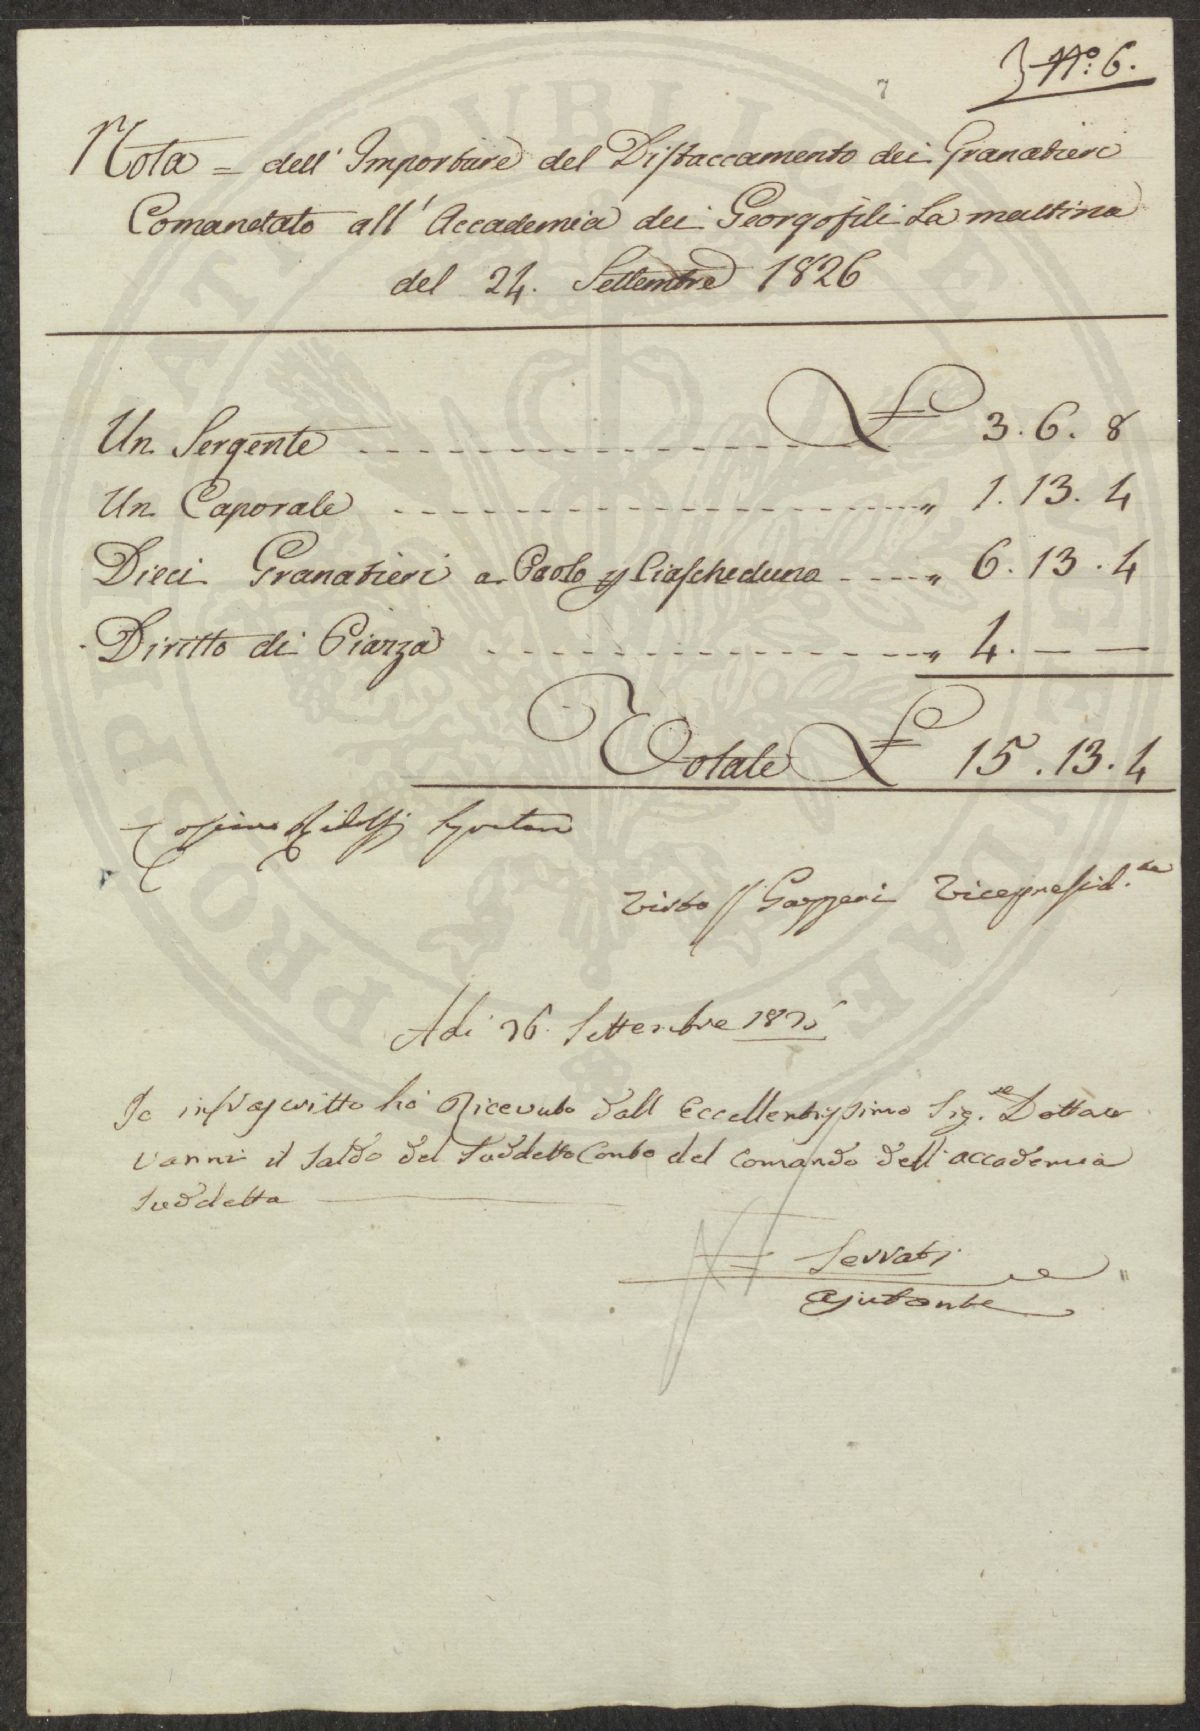 N.o 6.
7
Nota = dell' Importare del Distaccamento dei Granatieri
Comandato all' Accademia dei Georgofili La mattina
del 24. Settembre 1826
Un Sergente £ 3.6.8
Un Caporale " 1.13.4
Dieci Granatieri a Paolo p Ciascheduno " 6.13.4
Diritto di Piazza " 4. — —
Totale £ 15.13.4
Cosimo Ridolfi
Visto G Gazzeri Vicepresid.te
Adi 26. Settembre
Io infrascritto ho Ricevuto dall Eccellentissimo Sig.re Dottore
Vanni il Saldo del Suddetto Conto del Comando dell'accademia
Suddetta
Servati
Ajutante
PROPRIETATI PVBLICAE